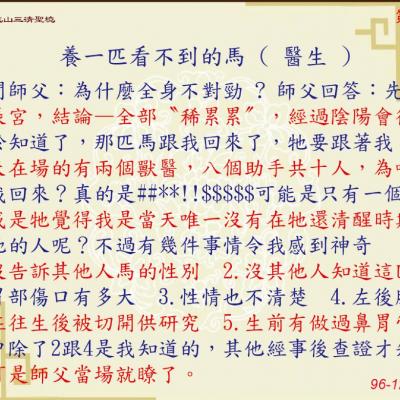 山三清聖境
養一匹看不到的馬 ( 醫生 )
師父：為什麼全身不對勁 ? 師父回答：先
宮，結論—全部〝稀累累〞，經過陰陽會
知道了，那匹馬跟我回來了，牠要跟著我
在場的有兩個獸醫，八個助手共十人，為
我回來？真的是##**!!$$$$$可能是只有一個
或是牠覺得我是當天唯一沒有在牠還清醒時
的人呢？不過有幾件事情令我感到神奇
沒告訴其他人馬的性別 2.沒其他人知道這
部傷口有多大 3.性情也不清楚 4.左後
往生後被切開供研究 5.生前有做過鼻胃
中除了2跟4是我知道的，其他經事後查證才
可是師父當場就瞭了。
96-1